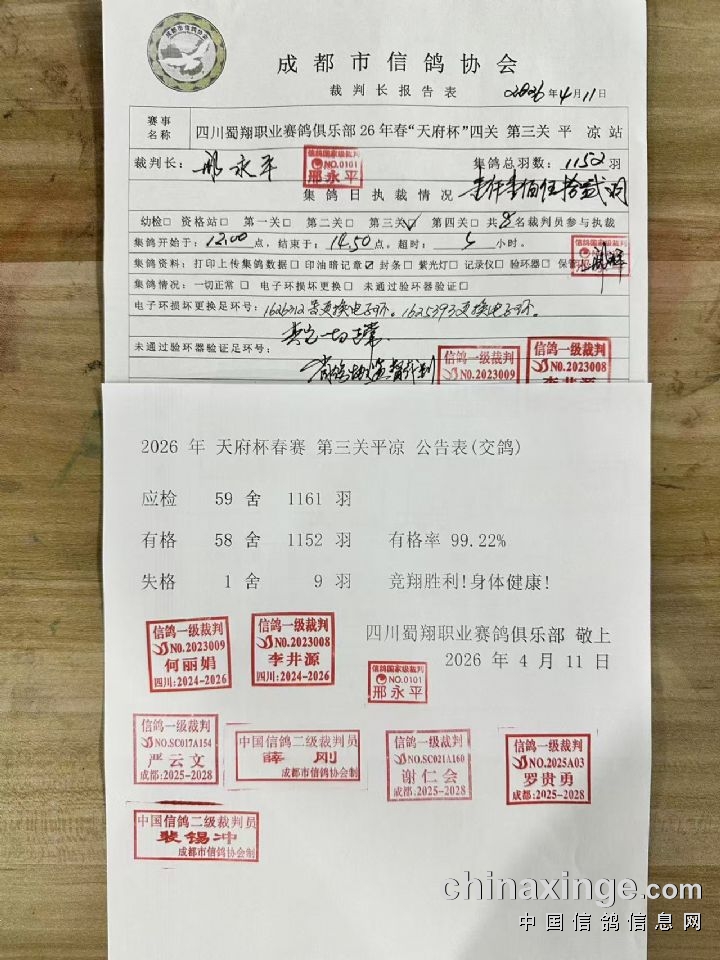 成都市信鸽协会
裁判长报告表 2026年4月11日
赛事名称 四川蜀翔职业赛鸽俱乐部26年春“天府杯”四关 第三关 平 凉 站
裁判长: 邢永平 信鸽国家级裁判 NO.0101 邢永平 集鸽总羽数: 1152 羽
集鸽日执裁情况 壹仟壹佰伍拾贰羽
幼检□ 资格站□ 第一关□ 第二关□ 第三关☑ 第四关□ 共8名裁判员参与执裁
集鸽开始于: 12.00 点, 结束于: 14.50 点。超时: 5 小时。
集鸽资料: 打印上传集鸽数据□ 印油暗记章☑ 封条□ 紫光灯□ 记录仪□ 验环器□
信鸽国家级裁判
集鸽情况: 一切正常 □ 电子环损坏更换□ 未通过验环器验证□
电子环损坏更换足环号: 更换电子环。1625393更换电子环。
未通过验环器验证足环号: 一切正常.
信鸽一级裁判 NO.2023009
信鸽一级裁判 NO.2023008 李井源
2026 年 天府杯春赛 第三关平凉 公告表(交鸽)
应检 59 舍 1161 羽
有格 58 舍 1152 羽 有格率 99.22%
失格 1 舍 9 羽 竞翔胜利!身体健康!
四川蜀翔职业赛鸽俱乐部 敬上
2026 年 4 月 11 日
信鸽一级裁判
NO.2023009
何丽娟
四川:2024-2026
信鸽一级裁判
NO.2023008
李井源
四川:2024-2026
信鸽国家级裁判
NO.0101
邢永平
信鸽一级裁判
NO.SC017A154
严云文
成都:2025-2028
中国信鸽二级裁判员
薛刚
成都市信鸽协会制
信鸽一级裁判
NO.SC021A160
谢仁会
成都:2025-2028
信鸽一级裁判
NO.2025A03
罗贵勇
成都:2025-2028
中国信鸽二级裁判员
裴锡冲
成都市信鸽协会制
chinaxinge.com
中国信鸽信息网